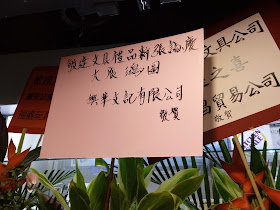 達文具禮品新張誌慶
大展鴻圖
興華文記有限公司
敬賀
文具公司
之喜
昌貿易公司
敬賀